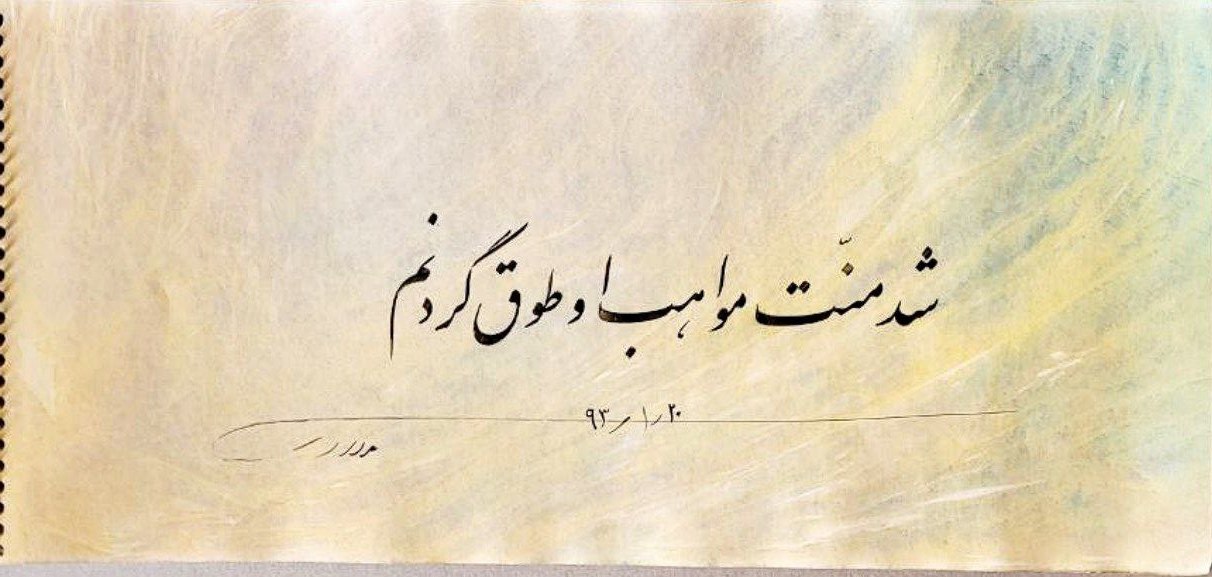 شد منّت مواهب او طوق گردنم
۲۰ ر ۱ ر ۹۳